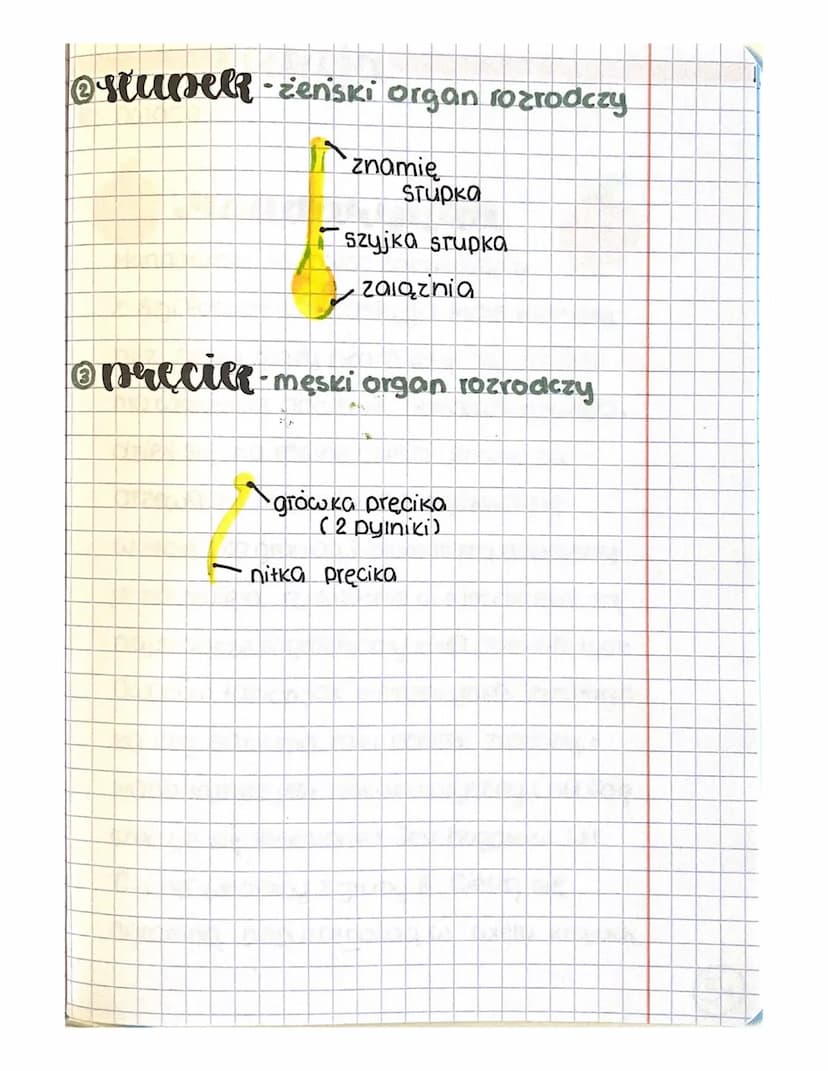 ② słupek - żeński organ rozrodczy
znamię
słupka
szyjka słupka
zalążnia
③ pręcik - męski organ rozrodczy
główka pręcika
(2 pylniki)
nitka pręcika